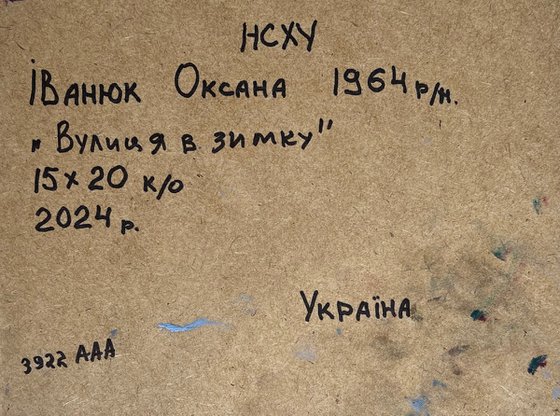 НСХУ
Іванюк Оксана 1964 р/н.
„Вулиця в зимку"
15х20 к/о
2024 р.
Україна
3922 ААА